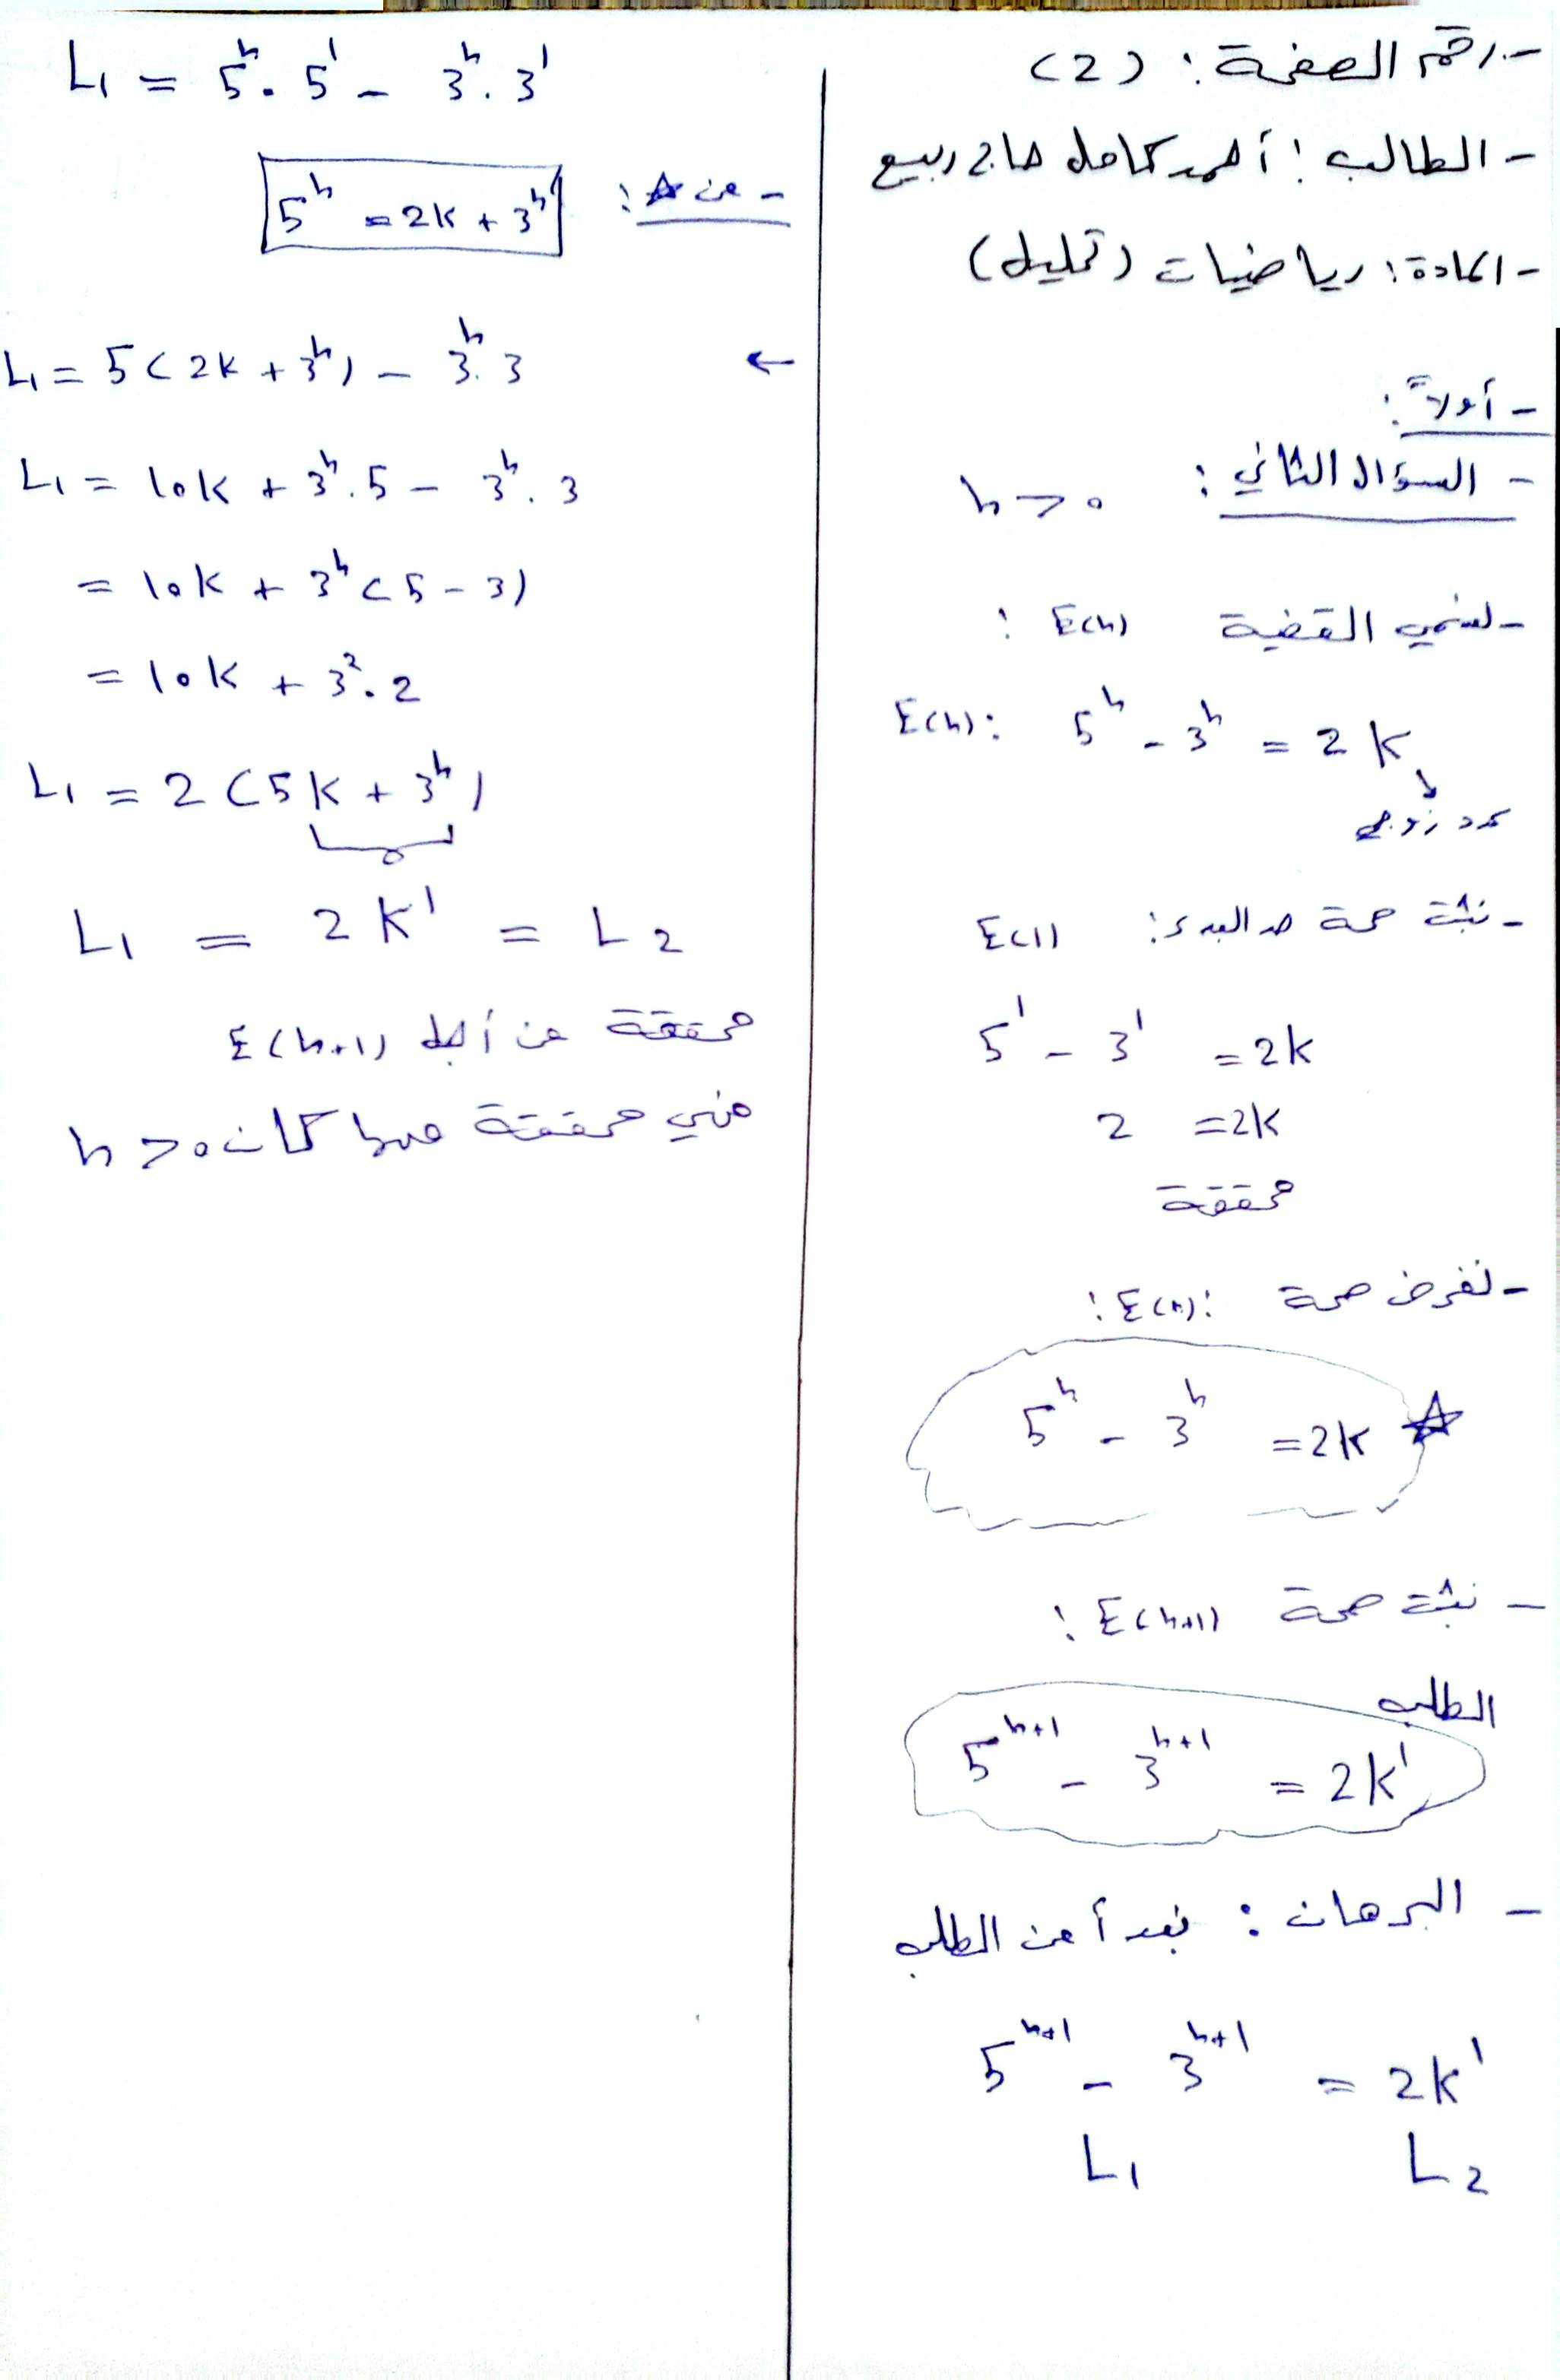 - رقم الصفحة : (2)
- الطالب : أحمد كامل حاج ربيع
- المادة : رياضيات (تحليل)
- أولاً :
- السؤال الثاني : n > 0
- لنسمي القضية E(n) :
E(n): 5^n - 3^n = 2K
عدد زوجي
- نثبت صحة حد البدء : E(1)
5^1 - 3^1 = 2K
2 = 2K
محققة
- نفرض صحة E(n): :
5^n - 3^n = 2K ☆
- نثبت صحة E(n+1) :
الطلب
5^{n+1} - 3^{n+1} = 2K'
- البرهان : نبدأ من الطلب
5^{n+1} - 3^{n+1} = 2K'
L1 L2
L1 = 5^n . 5^1 - 3^n . 3^1
- من ☆ : 5^n = 2K + 3^n
← L1 = 5(2K + 3^n) - 3^n . 3
L1 = 10K + 3^n . 5 - 3^n . 3
= 10K + 3^n (5 - 3)
= 10K + 3^2 . 2
L1 = 2(5K + 3^n)
L1 = 2K' = L2
محققة من أجل E(n+1)
فهي محققة مهما كان n > 0